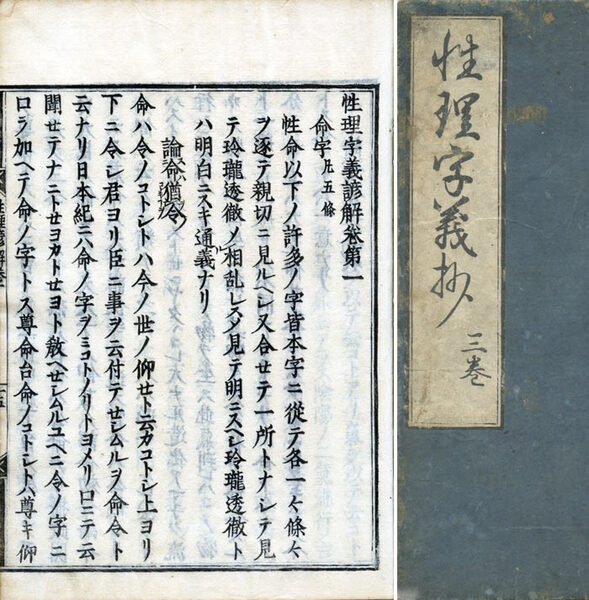 性理字義抄 三巻
性理字義諺解卷第一
命字凡五條
性命以下ノ許多ノ字皆本字ニ從テ各一々條々
ヲ逐テ親切ニ見ルヘシ又合セテ一所トナシテ見
テ玲瓏透徹ノ相乱レス見テ明ニスヘシ玲瓏透徹ト
ハ明白ニスキ通義ナリ
論命猶令
命ハ令ノコトシトハ今ノ世ノ仰セト云カコトシ上ヨリ
下ニ令シ君ヨリ臣ニ事ヲ云付テセシムルヲ命令ト
云ナリ日本紀ニハ命ノ字ヲミコトノリトヨメリ口ニテ云
聞セテナニトセヨカトセヨト敎ヘセシムルユヘニ令ノ字ニ
口ヲ加ヘテ命ノ字トス尊命台命ノコトシトハ尊キ仰